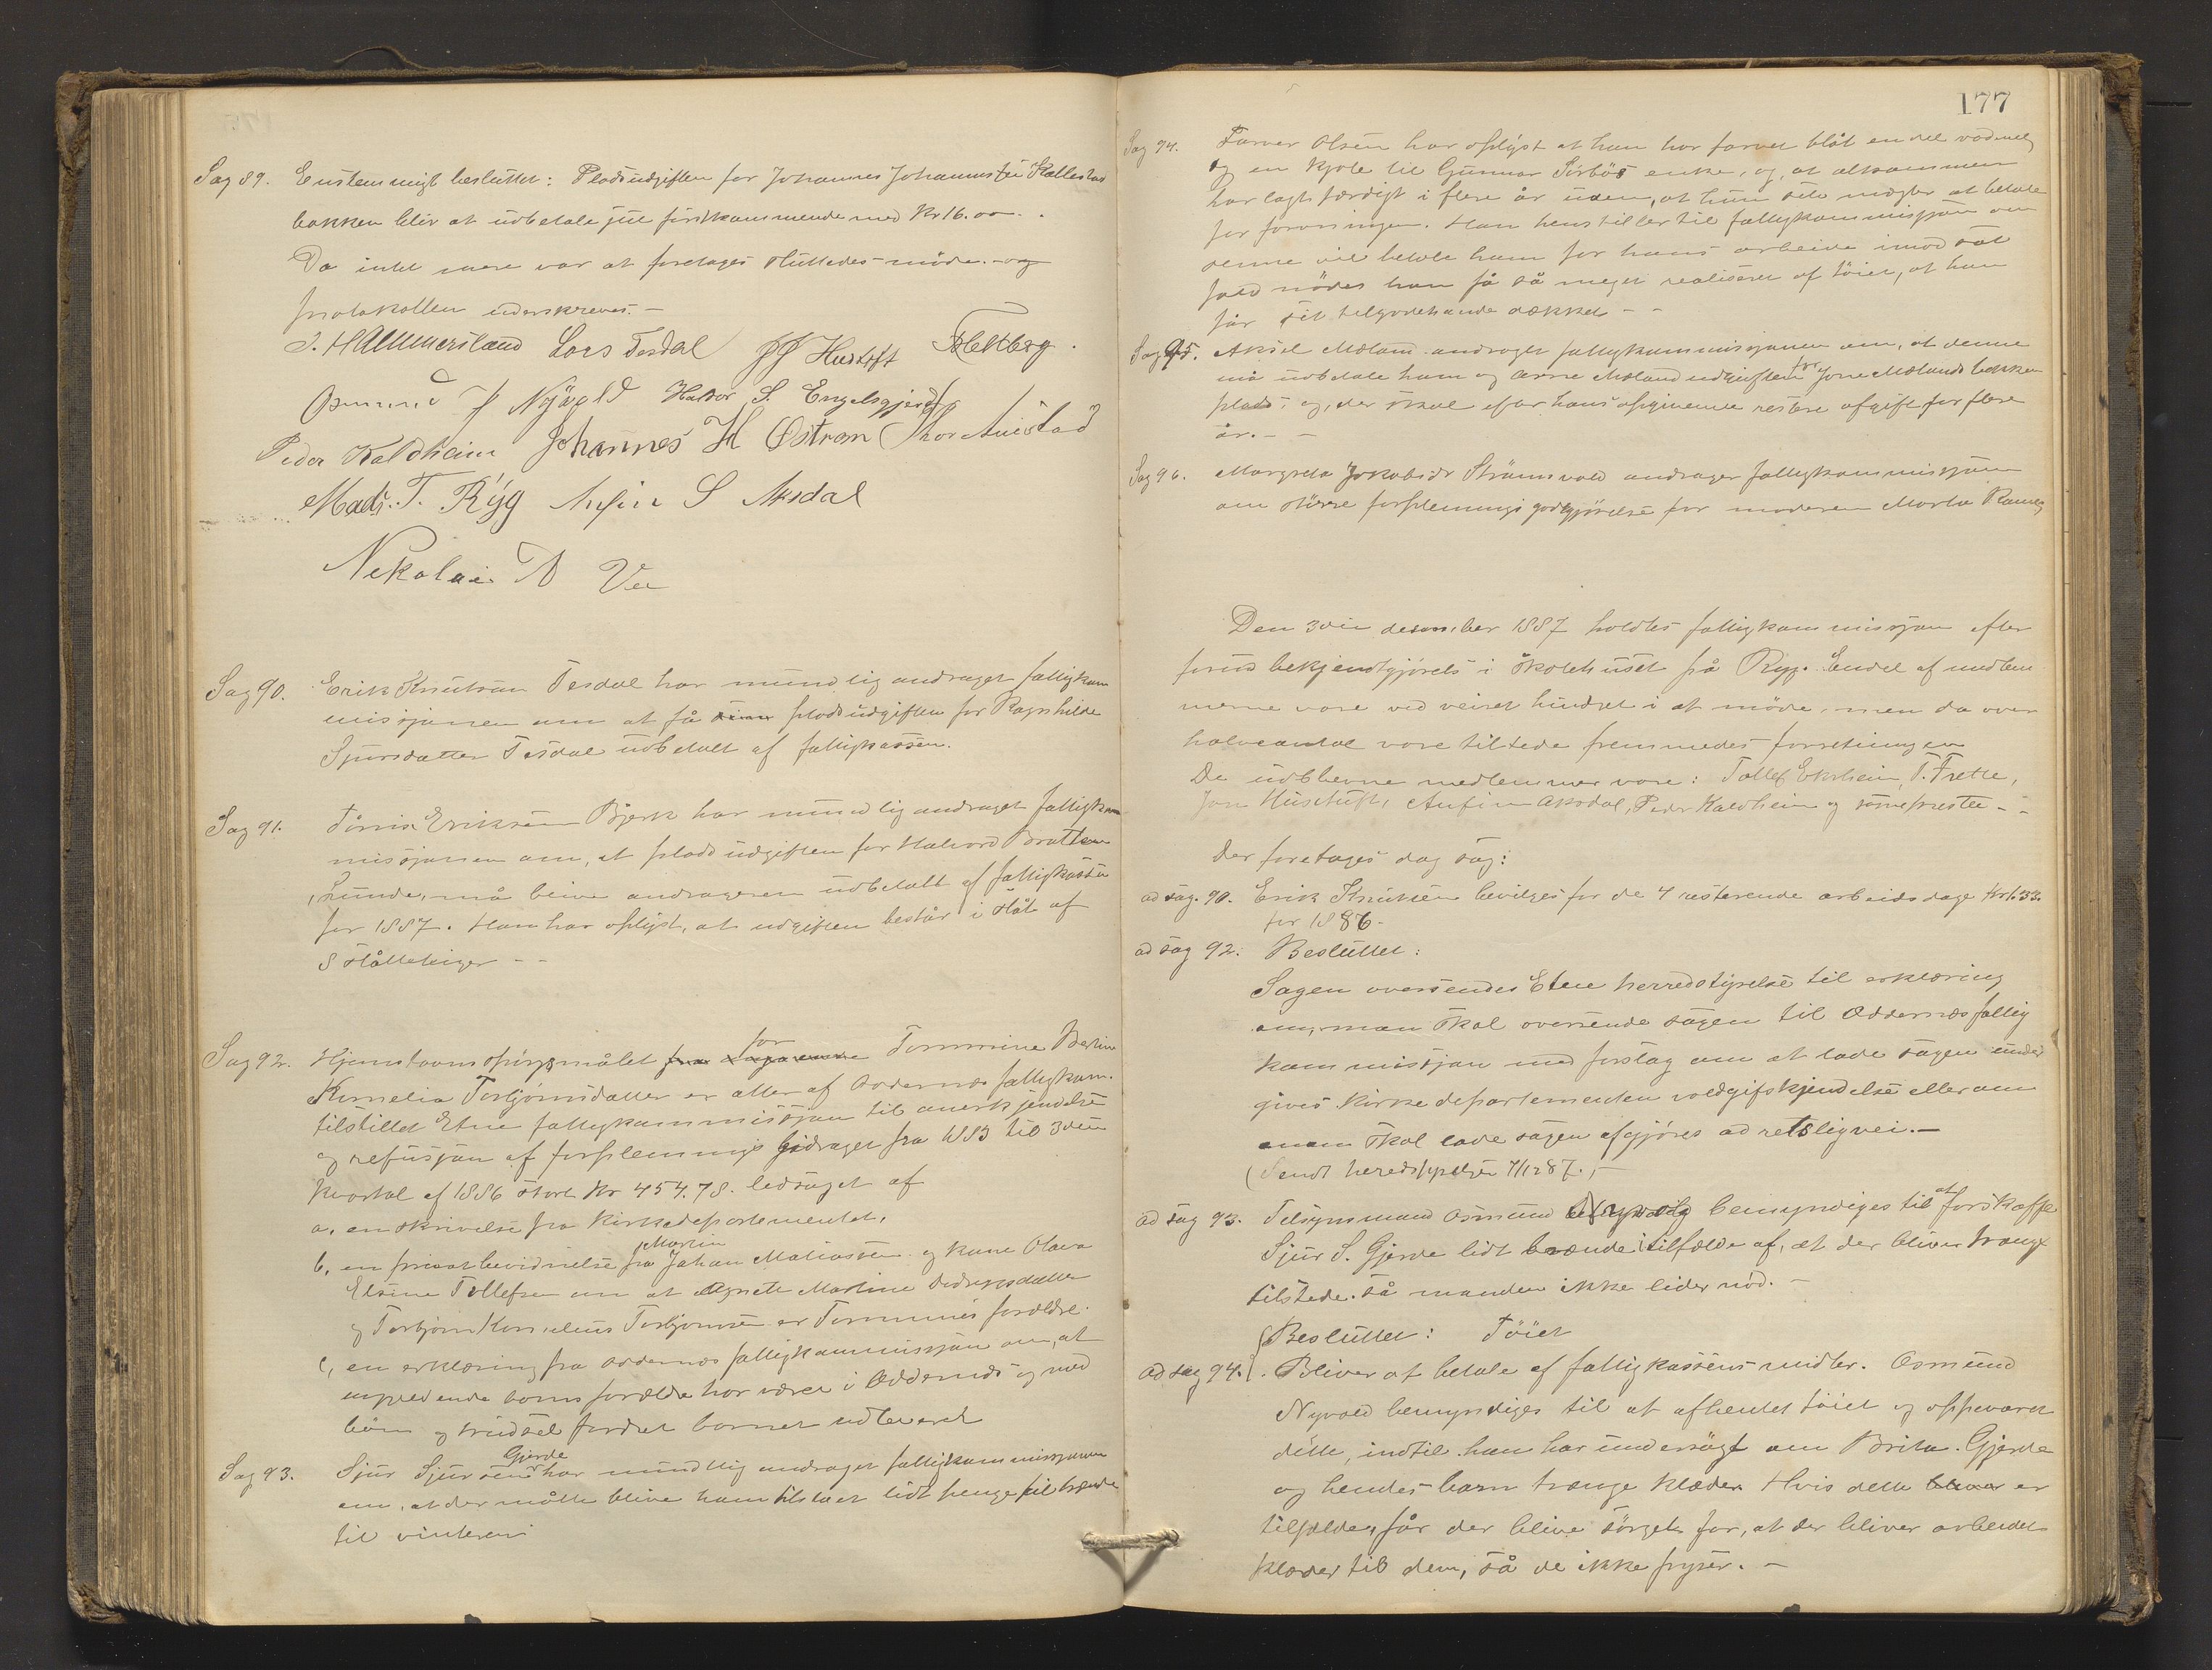 Sag 89. Enstemmigt besluttet: Pladsudgiften for Johannes Johannessen Skallestad
bakken bliv at udbetale jul førstkommende med Kr 16.00.
Da intet mere var at foretages sluttedes møde og
protokollen underskreves. –
I. Hammersland Lars Tesdal JJ Hustoft Feltberg.
Osmund J Nÿvold Haldor S. Engelsgjerd
Peder Kaldheim Johannes H Østrem Thor Austad
Mads. T. Rÿg Anfin S Aksdal
Nekolai N Ve
Sag 90. Erik Knutsen Tesdal har mundlig andraget fattigkom
missjonen om at få sine pladsudgiften for Ragnhilde
Sjursdatter Tesdal udbetalt af fattigkassen.
Sag 91. Tørris Eriksen Bjerk har mundlig andraget fattigkom
missjonen om, at pladsudgiften for Halvord Bratten
, Lunde, må blive andrageren udbetalt af fattigkassen
for 1887. Han har oplyst, at udgiften består i slåt af
8 slåtteteiger - -
Sag 92. Hjemstavnsspørgsmålet fra for Tommine Berlin
Kornelia Torbjørnsdatter er atter af Oddernes fattigkom.
tilstillet Etne fattigkommissjon til anerkjendelse
og refusjon af forplejnings bidraget fra 1883 til 3die
kvartal af 1886 stort Kr 454.78. ledsaget af
a, en skrivelse fra Kirkedepartementet,
b, en privat bevidnelse fra Johan Martin Matiassen og kone Olava
Elsine Tollefsen om at Agnete Martine Pedersdatter
og Torbjørn Kornelius Torbjørnsen er Tommines forældre.
c, en erklæring fra Oddernes fattigkommissjon om, at
angjeldende barns forældre har været i Oddernes og med
bøn og trudsel fordret barnet udleveret
Sag 93. Sjur Sjursens Gjerde har mundtlig andraget fattigkommissjonen
om, at der måtte blive ham tilstaat lidt penge til brænde
til vinteren
177
Sag 94. Farver Olsen har oplÿst at han har farvet blåt en del vadmel
og en kjole til Gunnar Sørbøs enke, og, at altsammen
har lagt færdigt i flere år uden, at hun selv mægter at betale
for farvningen. Han henstiller til fattigkommissjon om
denne vil betale ham for hans arbeide imodsat
fald nødes han få så meget realiseret af tøiet, at han
får sit tilgodehavende dækket - -
Sag 95. Aksel Mæland andraget fattigkommissjonen om, at denne
må udbetale ham og Arne Mæland udgiften for Jone Mælandsbakken
plads, og, der skal efter hans opgivende restere afgift for flere
år. - -
Sag 96. Margreta Jokobsdr Strømsvold andrager fattigkommissjonen
om større forplejnings godtgjørelse for moderen Marta Ramle,
Den 3die desember 1887 holdtes fattigkommissjon efter
forud bekjendtgjørels i skolehuset på Rygg. Endel af medlem
merne vare ved veiret hindret i at møde, men da over
halveantal vare tilstede fremmedes forretningen
De udblevne medlemmer vare: Tollef Ekrheim, T. Frette,
Jon Hustuft, Anfinn Aksdal, Peder Kaldheim og sognepresten - -
Der foretages dag sag:
ad sag. 90. Erik Knutsen bevilges for de 4 resterende arbeidsdage Kr 1.33.
for 1886.
ad sag 92. Besluttet:
Sagen oversendes Etne herredstyrelse til erklæring
om, man skal oversende sagen til Oddernes fattig
kommissjon med forslag om at lade sagen under
gives kirkedepartementen voldgifskjendelse eller om
man skal lade sagen afgjøres ad retslig vei. –
(Sendt heredstyrelsen 7/12 87. –
ad sag 93. Tilsynsmand Osmund Nyvold bemyndiges til at forskaffe
Sjur S. Gjerde lidt brænde i tilfælde af, at der bliver trang
tilstede, så manden ikke lider nød. –
Besluttet: Tøiet
ad sag 94. Bliver at betale af fattigkassens midler. Osmund
Nyvold bemyndiges til at afhentet tøiet og oppevaret
dette, indtil han har undersøgt om Brita Gjerde
og hendes barn trænge klæder. Hvis dette er
tilfælde, får der blive sørget for, at der bliver arbeidet
klæder til dem, så de ikke fryser. –